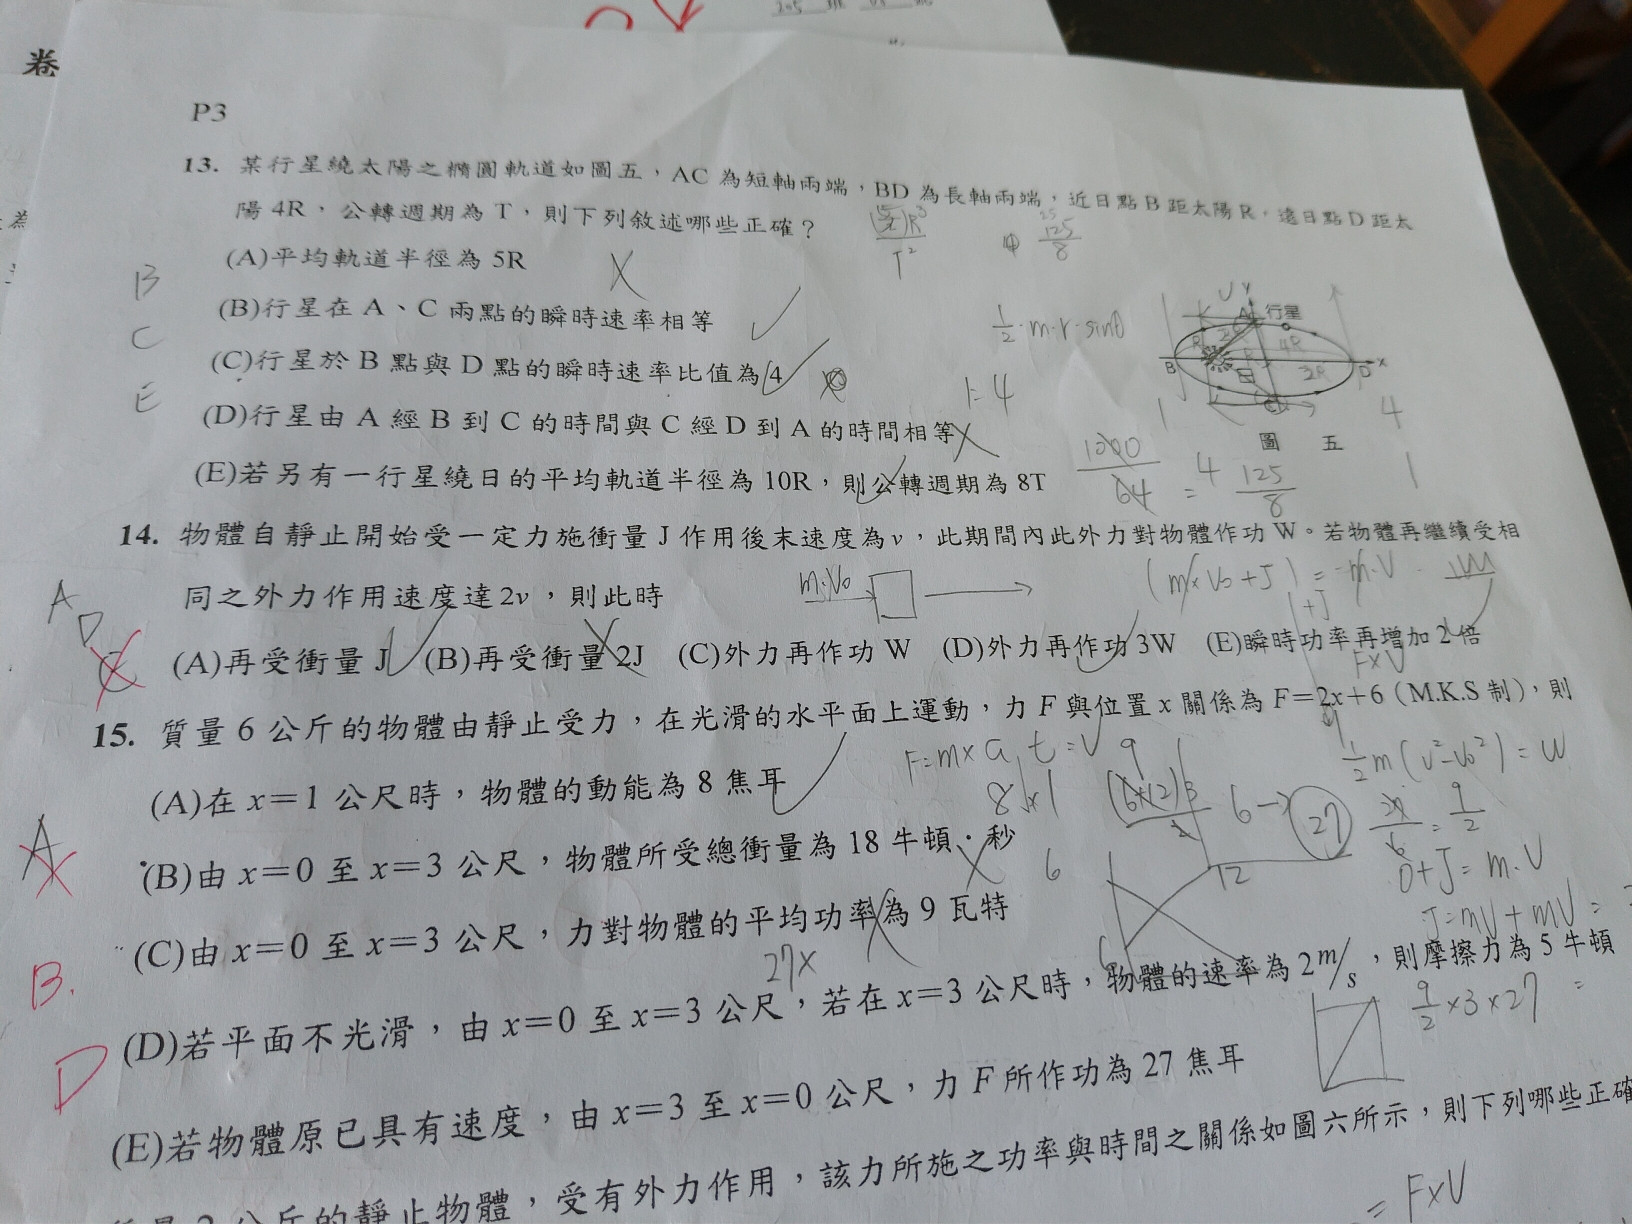 卷
P3
13. 某行星繞太陽之橢圓軌道如圖五，AC 為短軸兩端，BD 為長軸兩端，近日點 B 距太陽 R，遠日點 D 距太
陽 4R，公轉週期為 T，則下列敘述哪些正確？
(A)平均軌道半徑為 5R
(B)行星在 A、C 兩點的瞬時速率相等
(C)行星於 B 點與 D 點的瞬時速率比值為 4
(D)行星由 A 經 B 到 C 的時間與 C 經 D 到 A 的時間相等
(E)若另有一行星繞日的平均軌道半徑為 10R，則公轉週期為 8T
B
C
E
T²
125
8
½·m·r·sinθ
1:4
y
A
行星
R
4R
B
2R
D
x
圖 五
1
4
1000
64
= 4
125
8
1
14. 物體自靜止開始受一定力施衝量 J 作用後末速度為 v，此期間內此外力對物體作功 W。若物體再繼續受相
同之外力作用速度達 2v，則此時
(A)再受衝量 J (B)再受衝量 2J (C)外力再作功 W (D)外力再作功 3W (E)瞬時功率再增加 2 倍
A
D
C
m·V₀
(m×V₀+J) = m·V
F×V
15. 質量 6 公斤的物體由靜止受力，在光滑的水平面上運動，力 F 與位置 x 關係為 F=2x+6（M.K.S 制），則
(A)在 x=1 公尺時，物體的動能為 8 焦耳
(B)由 x=0 至 x=3 公尺，物體所受總衝量為 18 牛頓·秒
(C)由 x=0 至 x=3 公尺，力對物體的平均功率為 9 瓦特
(D)若平面不光滑，由 x=0 至 x=3 公尺，若在 x=3 公尺時，物體的速率為 2 m/s，則摩擦力為 5 牛頓
(E)若物體原已具有速度，由 x=3 至 x=0 公尺，力 F 所作功為 27 焦耳
A
B.
D
F=m×a
t=V
9
(6+12)3
6→27
½m(v²-v₀²)=W
6
= 9/2
6
12
0+J=m·V
J=mV+mV=
27×
9/2×3×27 =
公斤的靜止物體，受有外力作用，該力所施之功率與時間之關係如圖六所示，則下列哪些正確
= F×V